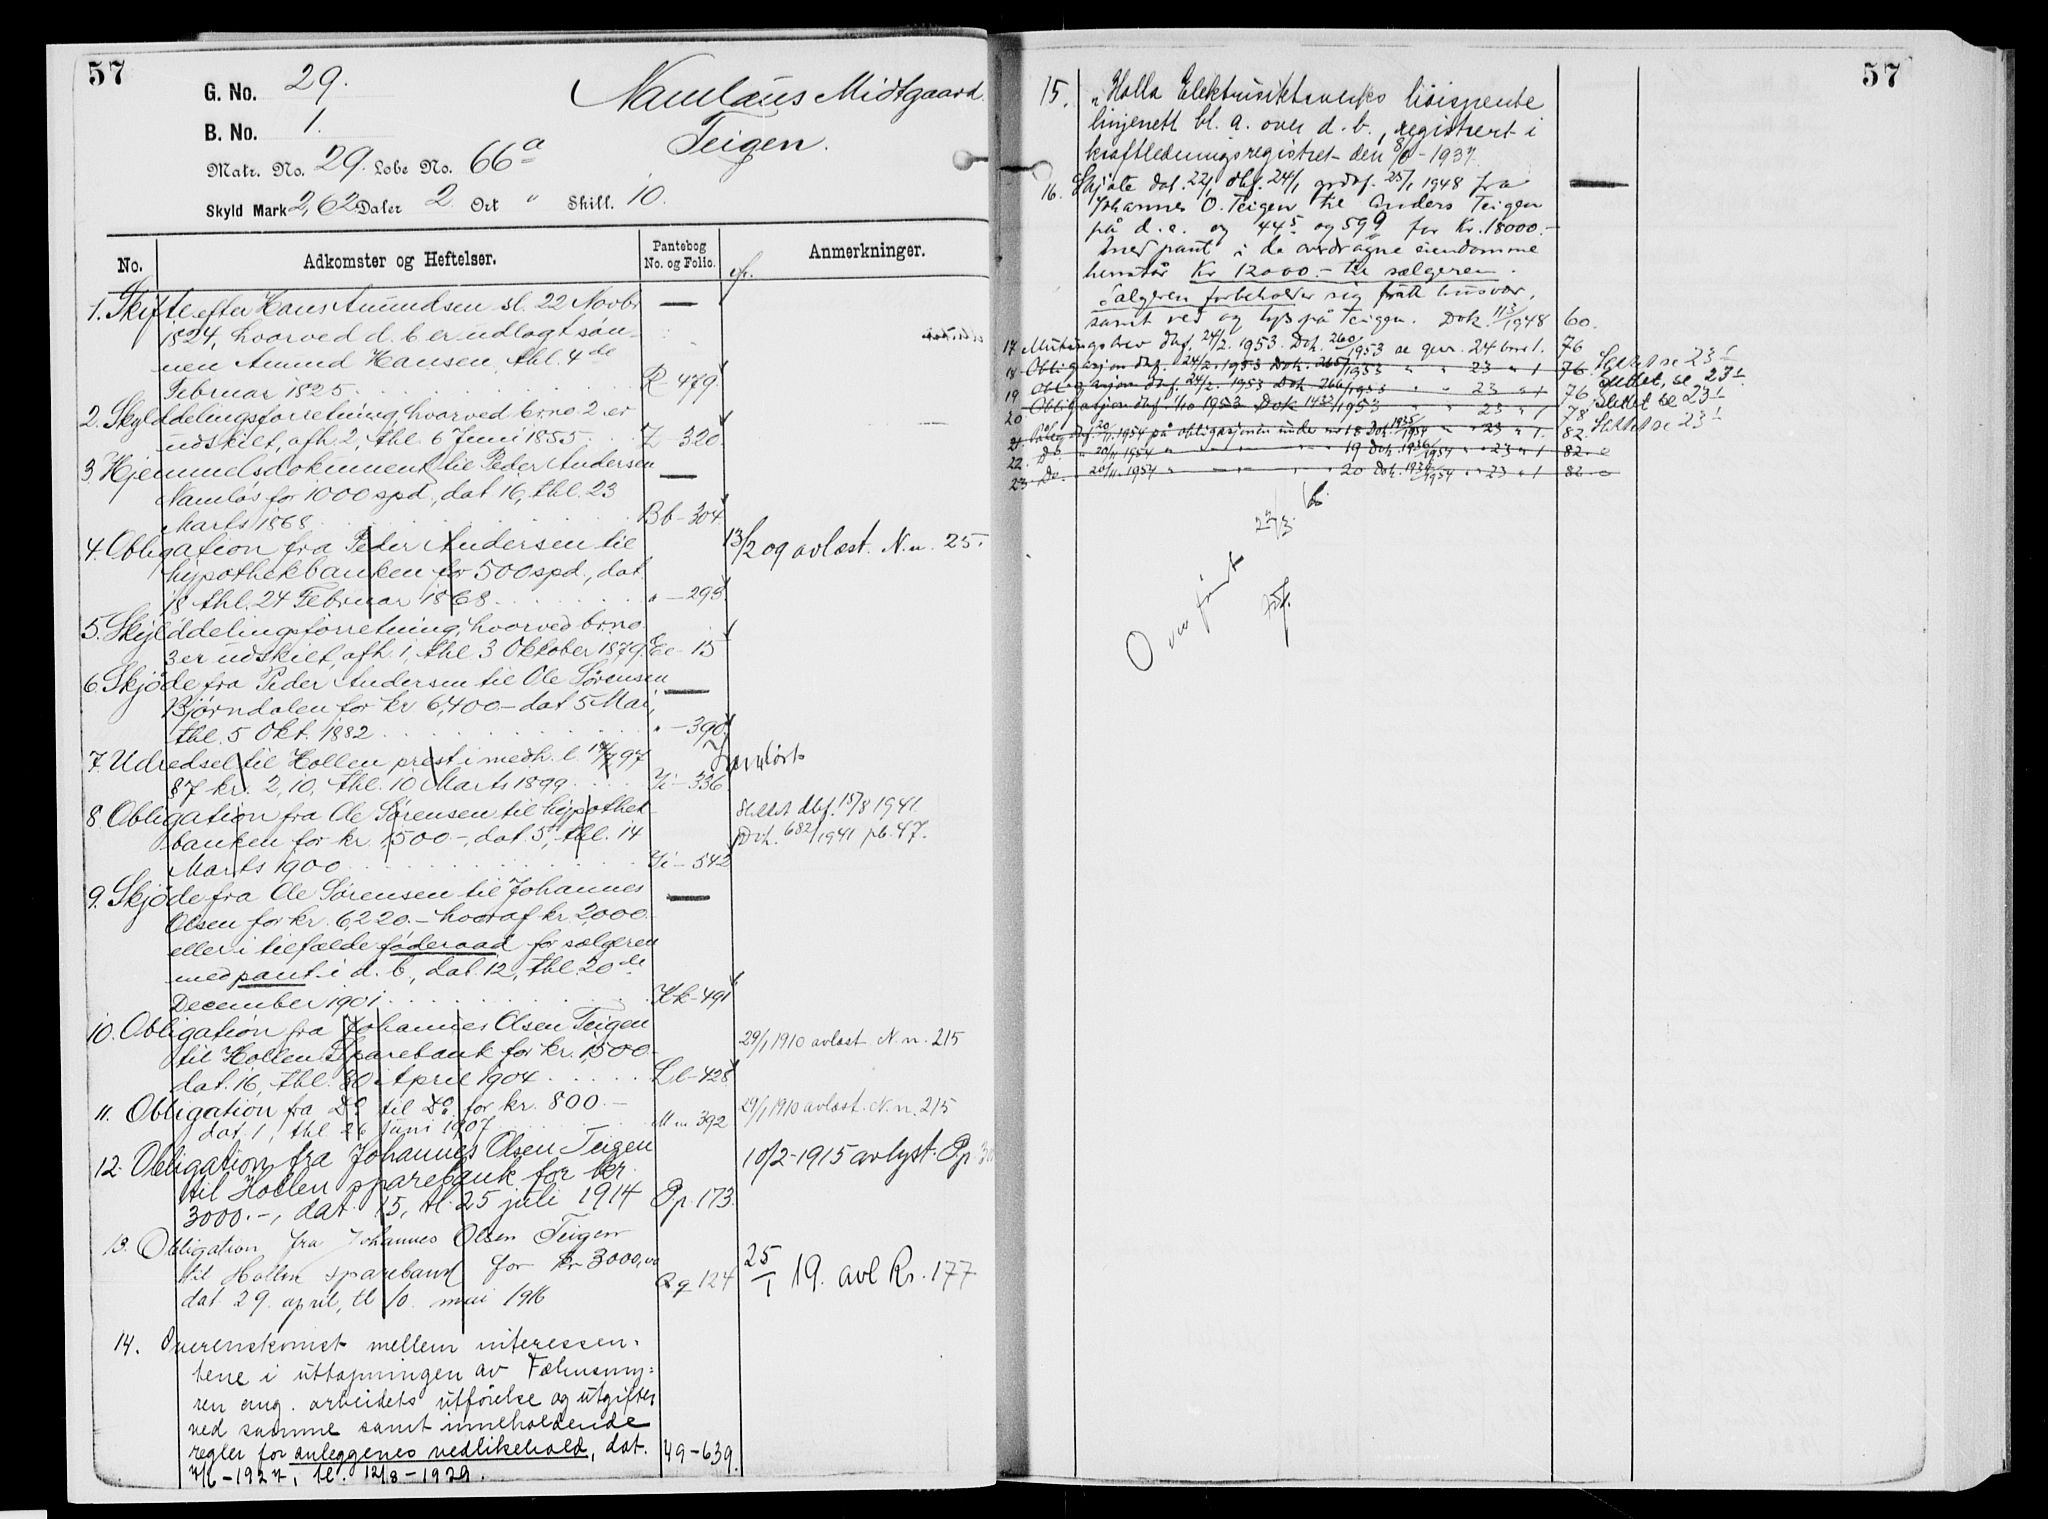 57
G. No. 29.
B. No. 1.
Matr. No. 29. Lobe No. 66a
Skyld Mark 2,62 Daler 2 Ort " Skill. 10.
Namlaus Midtgaard.
Teigen.
No. Adkomster og Heftelser. Pantebog No. og Folio. Anmerkninger.
1. Skifte efter Hans Amundsen sl. 22 Novbr
1824, hvorved d. b. er udlagt søn-
nen Amund Hansen, thl. 4de
Februar 1825 R 479.
2. Skylddelingsforretning hvorved brno 2 er
udskilt, afh. 2, thl. 6 Juni 1855 Z 320
3 Hjemmelsdokument til Peder Andersen
Namløs for 1000 spd, dat 16, thl. 23
Marts 1868 Bb-304
4. Obligation fra Peder Andersen til
hypothekbanken for 500 spd., dat
18 thl. 24 Februar 1868 " - 293.
13/2 09 avlæst. N.n. 25.
5. Skylddelingsforretning, hvorved brno
3 er udskilt, afh. 1, thl. 3 Oktober 1879. Ee - 15
6. Skjøde fra Peder Andersen til Ole Sørensen
Bjørndalen for kr 6,400.- dat 5 Mai,
thl. 5 Okt. 1882 " - 390.
7. Udredsel til Hollen prest i medh. l. 97
§7 kr. 2,10, thl. 10 Marts 1899 Ii - 336
8. Obligation fra Ole Sørensen til hypothek-
banken for kr. 1,500.-, dat. 5, thl. 14
Marts 1900 Ii - 542
Slettet dbf. 15/8 1941
Dok. 682/1941 pb. 47.
9. Skjøde fra Ole Sørensen til Johannes
Olsen for kr. 6,220.- hvoraf kr 2,000.-
eller i tilfælde føderaad for sælgeren
med pant i d. b., dat. 12, thl. 20de
December 1901 Kk - 491
10. Obligation fra Johannes Olsen Teigen
til Hollen Sparebank for kr. 1,500.-
dat. 16, thl. 30 April 1904 Ll - 428
29/1 1910 avlæst N.n. 215
11. Obligation fra Do til Do. for kr. 800.-
dat. 1, thl 26 juni 1907 Mm 392
29/1 1910 avlæst. N.n. 215
12. Obligation fra Johannes Olsen Teigen
til Hollen sparebank for kr.
3000.-, dat. 15, tl. 25 juli 1914 Pp. 173.
10/2-1915 avlyst. Pp
13. Obligation fra Johannes Olsen Teigen
til Hollen sparebank for kr 3000,00
dat. 29. april, tl 10. mai 1916 Qq 124
25/1 19. avl Rr. 177
14. Overenskomst mellem interessen-
tene i uttapningen av Fælmsmy-
ren ang. arbeidets utførelse og utgifter
ved samme samt inneholdende
regler for anleggenes vedlikehold, dat.
7/6-1927, tl. 12/8-1929. 49-639.
57
15. Holla Elektrisitetsverks høispente
linjenett bl. a. over d. b., registrert i
kraftledningsregistret den 8/6-1937.
16. Skjøte dat. 22/1 dbf. 24/1 grdbf. 25/1 1948 fra
Johannes O. Teigen til Anders Teigen
på d. e. og 44 5 og 59 9 for Kr. 18000.-
Med pant i de overdragne eiendomme
henstår Kr 12000.- til sælgeren.
Sælgeren forbeholder sig fritt husvær,
samt ved og lys på Teigen. Dok. 113/1948 60.
17 Målingsbrev dbf. 24/2. 1953. Dok. 260/1953 se gnr. 24 bnr 1. 76
18 Obligasjon dbf. 24/2. 1953 Dok. 265/1953 " " 23 " 1 76. Slettet se 23 1
19 Obligasjon dbf. 24/2. 1953 Dok 266/1953 " " 23 " 1 76 Slettet, se 23 1
20 Obligasjon dbf. 1/10 1953 Dok 1432/1953 " " 23 " 1 78 Slettet se 23 1
21. Påteg. dbf. 20/11. 1954 på obligasjonen under nr 18 Dok. 1935/1954 " " 23 " 1. 82. Slettet se 23 1
22. Do. " 20/11 1954 " 19 Dok. 1936/1954 " " 23 " 1 82.
23 Do. " 20/11. 1954 " 20 Dok. 1937/1954 " " 23 " 1 82
Overført